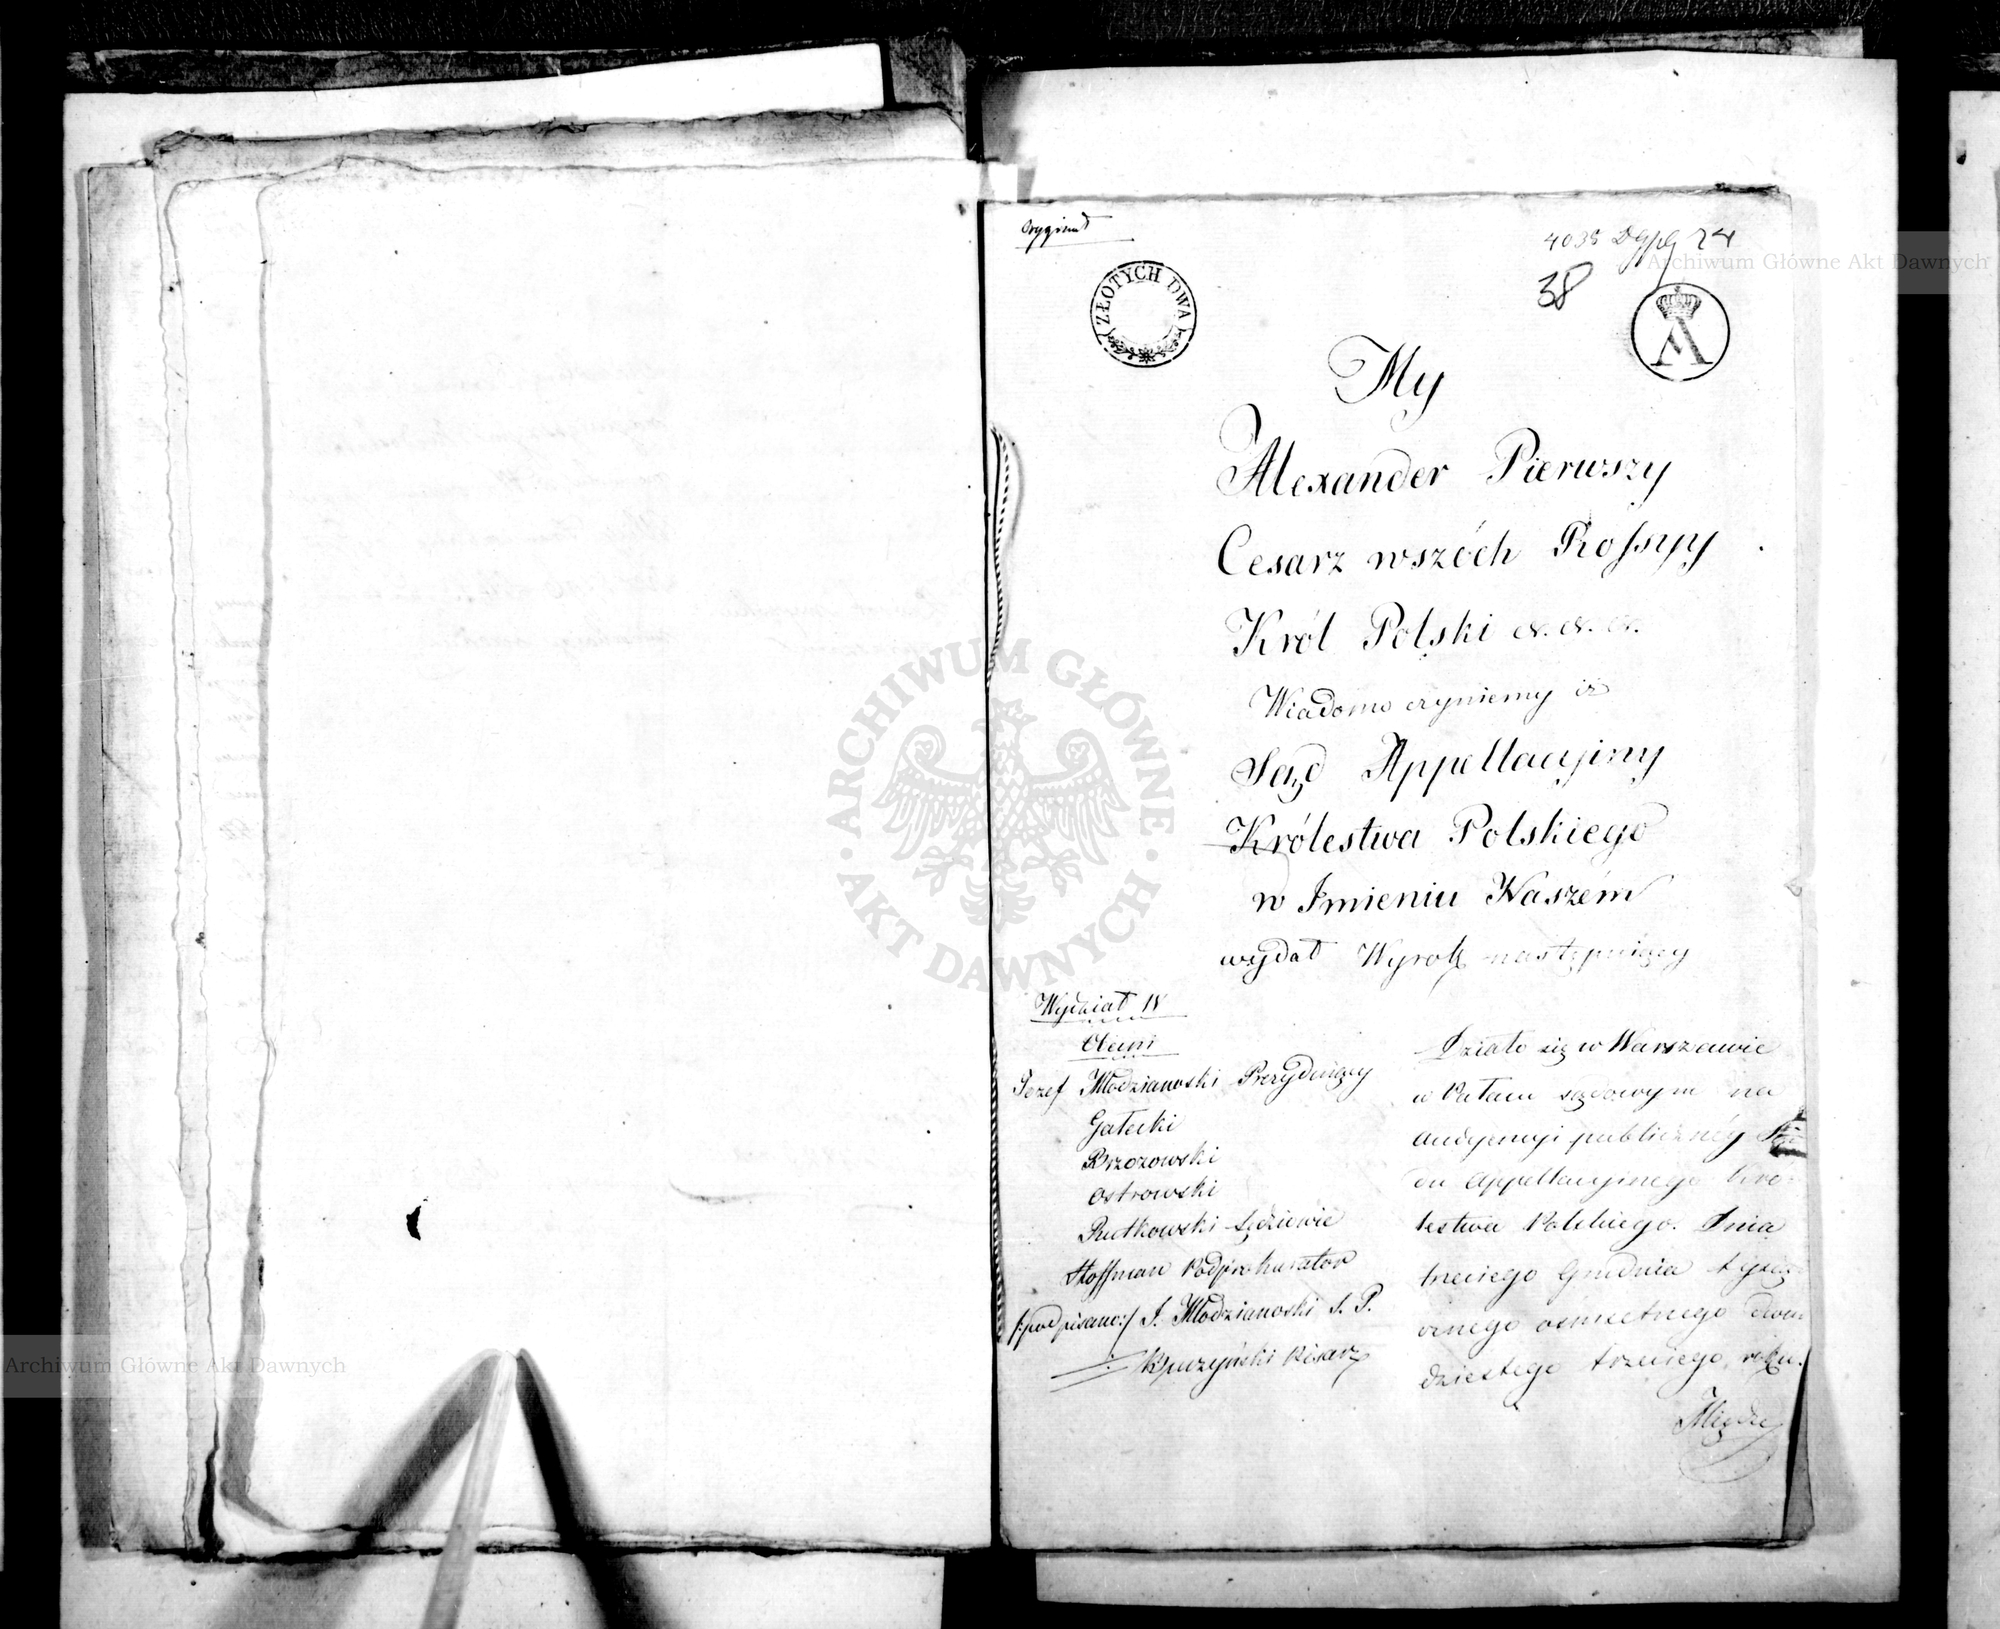 Oryginał
4038
24
38
ZŁOTYCH DWA
A
My
Alexander Pierwszy
Cesarz wszéch Rossyy
Król Polski &. &. &.
Wiadomo czyniemy iż
Sąd Appellacyiny
Królestwa Polskiego
w Imieniu Naszém
wydał Wyrok następuiący
Wydział IV
Obecni
Jozef Młodzianowski Prezyduiący
Gałecki
Brzozowski
Ostrowski
Rutkowski Sędziowie
Hoffman Podprokurator
/:podpisano:/ J. Młodzianowski S. P.
Pisarz
Działo się w Warszawie
w Pałacu sądowym na
audyencyi publicznéy Są-
du Appellacyinego Kró-
lestwa Polskiego. Dnia
trzeciego Grudnia tysiąc
cznego osmsetnego dwu-
dziestego trzeciego roku.
Między
ARCHIWUM GŁÓWNE
AKT DAWNYCH
Archiwum Główne Akt Dawnych
Archiwum Główne Akt Dawnych